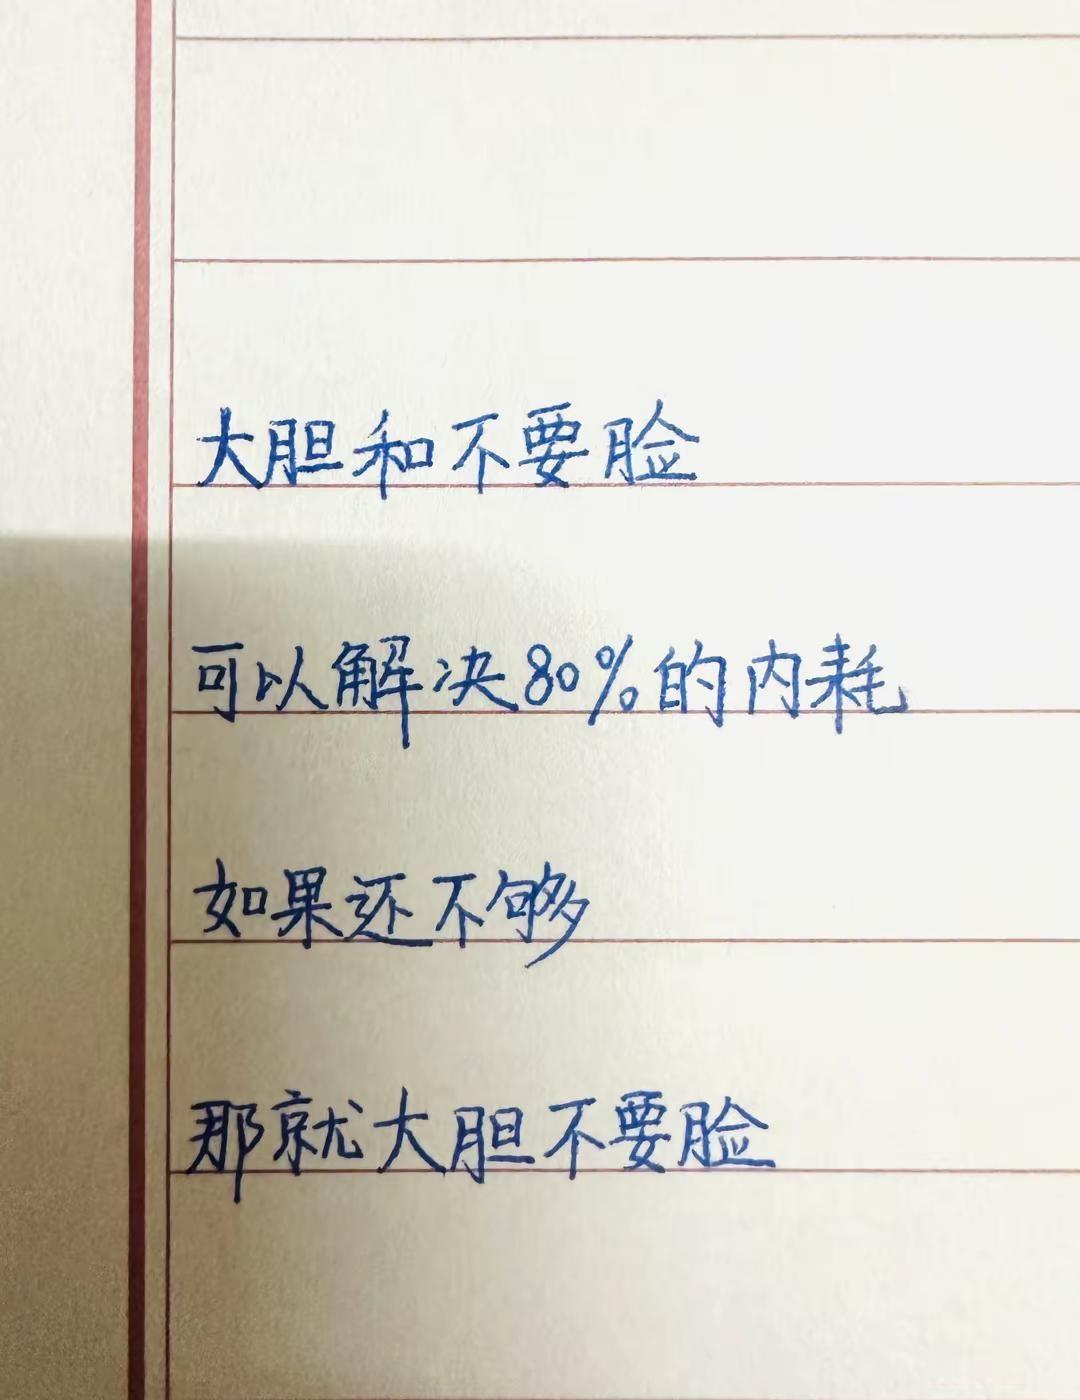 大胆和不要脸
可以解决80%的内耗
如果还不够
那就大胆不要脸